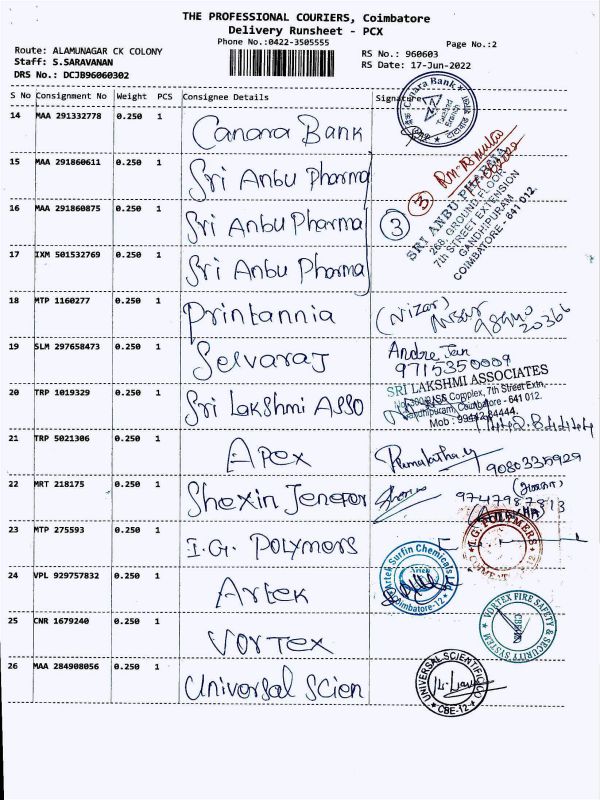 THE PROFESSIONAL COURIERS, Coimbatore
Delivery Runsheet - PCX
Phone No.:0422-3505555
Page No.:2
Route: ALAMUNAGAR CK COLONY
RS No.: 960603
Staff: S.SARAVANAN
RS Date: 17-Jun-2022
DRS No.: DCJB96060302
S No Consignment No Weight PCS Consignee Details Signature
14 MAA 291332778 0.250 1 Canara Bank
Canara Bank
15 MAA 291860611 0.250 1 Sri Anbu Pharma
3
16 MAA 291860875 0.250 1 Sri Anbu Pharma
3
SRI ANBU PHARMA
268, GROUND FLOOR
7th STREET EXTENSION
GANDHIPURAM
COIMBATORE - 641 012.
17 IXM 501532769 0.250 1 Sri Anbu Pharma
18 MTP 1160277 0.250 1 Printannia
(Nizar)
20366
19 SLM 297658473 0.250 1 Selvaraj
9715350009
20 TRP 1019329 0.250 1 Sri Lakshmi Asso
SRI LAKSHMI ASSOCIATES
Complex, 7th Street Extn,
Gandhipuram, Coimbatore - 641 012.
21 TRP 5021306 0.250 1 Apex
9080335929
22 MRT 218175 0.250 1 Shexin Jenefer
9747987813
23 MTP 275593 0.250 1 I.G. Polymers
I.G. POLYMERS
24 VPL 929757832 0.250 1 Artek
Artek Surfin Chemicals
Coimbatore-12
25 CNR 1679240 0.250 1 Vortex
VORTEX FIRE SAFETY & SECURITY SYSTEM
CBE
26 MAA 284908056 0.250 1 Universal Scien
UNIVERSAL SCIENTIFIC CO
CBE-12